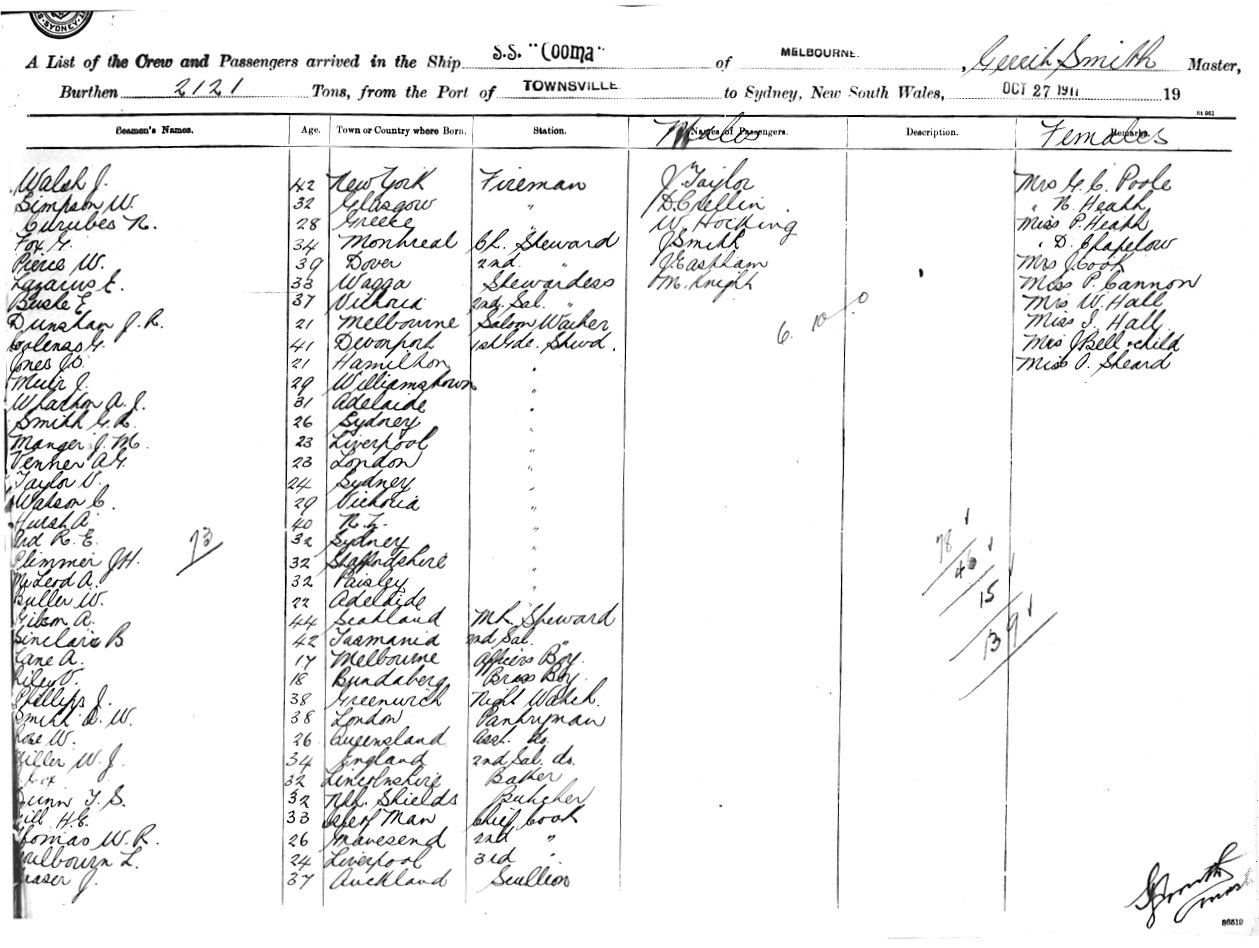 SYDNEY
A List of the Crew and Passengers arrived in the Ship S.S. "Cooma" of MELBOURNE, Smith Master,
Burthen 2121 Tons, from the Port of TOWNSVILLE to Sydney, New South Wales, OCT 27 1911 19
St 961
Seamen's Names. Age. Town or Country where Born. Station. Names of Passengers. Males Description. Remarks. Females
Walsh J. 42 New York Fireman J. Taylor Mrs G. C. Poole
Simpson W. 32 Glasgow " D. Crellin " N. Heath
Curubes N. 28 Greece " W. Hocking Miss P. Heath
Fox G. 34 Montreal Ch. Steward J Smith " D. Chapelow
Pierce W. 39 Dover 2nd " J. Eastham Mrs J. Cook
Lazarus E. 33 Wagga Stewardess M. Knight Miss P. Cannon
Buske E 37 Victoria 2nd Sal. " Mrs W. Hall
Dunstan J. R. 21 Melbourne Saloon Waiter 6. 10 Miss I. Hall
Colenso G. 41 Devonport 1st Gde. Stwd. Mrs J Bell + child
Jones J. 21 Hamilton " Miss O. Sheard
Muir J. 29 Williamstown "
Wharton A. J. 31 Adelaide "
Smith G. R. 26 Sydney "
Manger J. M. 23 Liverpool "
Venner A. G. 23 London "
Taylor V. 24 Sydney "
Watson C. 29 Victoria "
Hursh A. 40 N. Z. "
R. E. 32 Sydney "
73
78
Plimmer J H. 32 Staffordshire "
46
McLeod A. 32 Paisley "
Butler W. 22 Adelaide "
15
Gibson A. 44 Scotland Mh. Steward
Sinclair B 42 Tasmania 2nd Sal. "
139
Lane A. 17 Melbourne Officers Boy.
Riley V. 18 Bundaberg Brass Boy.
Phillips J. 38 Greenwich Night Watch.
Smith D. W. 38 London Pantryman
Rose W. 26 Queensland Asst. do.
Miller W. J. 34 England 2nd Sal. do.
Cox 32 Lincolnshire Baker
Dunn T. S. 32 Nth. Shields Butcher
Hill H. E. 33 Isle of Man Chief Cook
Thomas W. R. 26 Gravesend 2nd "
L. 24 Liverpool 3rd "
Fraser J. 37 Auckland Scullion
Smith
86519